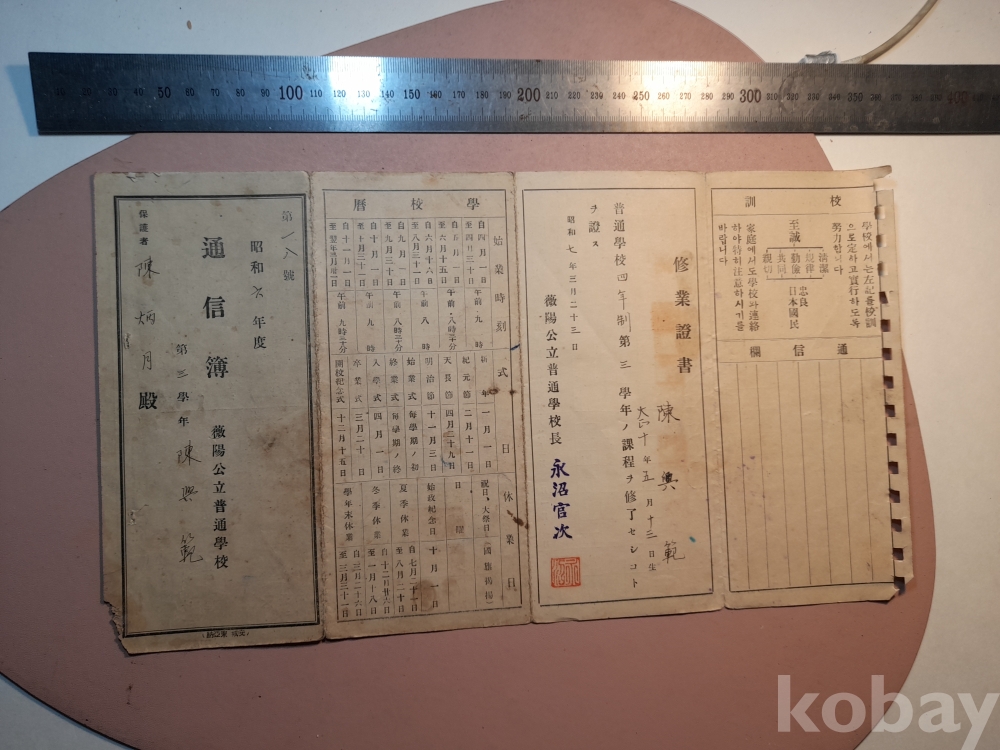 50 100 110 120 130 140 150 160 170 180 190 200 210 220 230 240 250 260 270 280 290 300 310 320 330 340 350 400
第一八號
昭和六年度
通信簿
薇陽公立普通學校
第三學年 陳興範
保護者 陳炳月殿
學校曆
始業時刻
自四月一日
至四月三十日
午前九時
自五月一日
至六月十五日
午前八時三十分
自六月十六日
至八月三十一日
午前八時
自九月一日
至九月三十日
午前八時三十分
自十月一日
至十月三十一日
午前九時
自十一月一日
午前九時三十分
式日
新年 一月一日
紀元節 二月十一日
天長節 四月二十九日
明治節 十一月三日
始業式 每學期ノ初
終業式 每學期ノ終
入學式 四月一日
卒業式 三月二十日
開校紀念式 十二月十五日
休業日
祝日、大祭日(國旗揭揚)
日曜日
始政紀念日 十月一日
夏季休業
自七月二十一日
至八月二十日
冬季休業
自十二月廿六日
至一月十八日
學年末休業
自三月二十六日
至三月三十一日
修業證書
陳興範
大正十年五月十三日生
普通學校四年制第三學年ノ課程ヲ修了セシコト
ヲ證ス
昭和七年三月二十三日
薇陽公立普通學校長 永沼官次
校訓
學校에서는左記를校訓
으로定하고實行하도록
努力합니다
至誠
淸潔
規律
勤儉
共同
親切
忠良
日本國民
家庭에서도學校와連絡
하야特히注意하시기를
바랍니다
通信欄
kobay